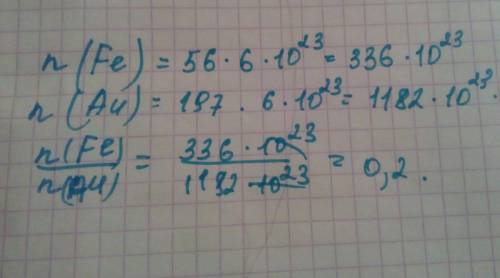 n (Fe) = 56 · 6 · 10²³ = 336 · 10²³
n (Au) = 197 · 6 · 10²³ = 1182 · 10²³.
n(Fe)/n(Au) = 336 · 10²³/1182 10²³ = 0,2.